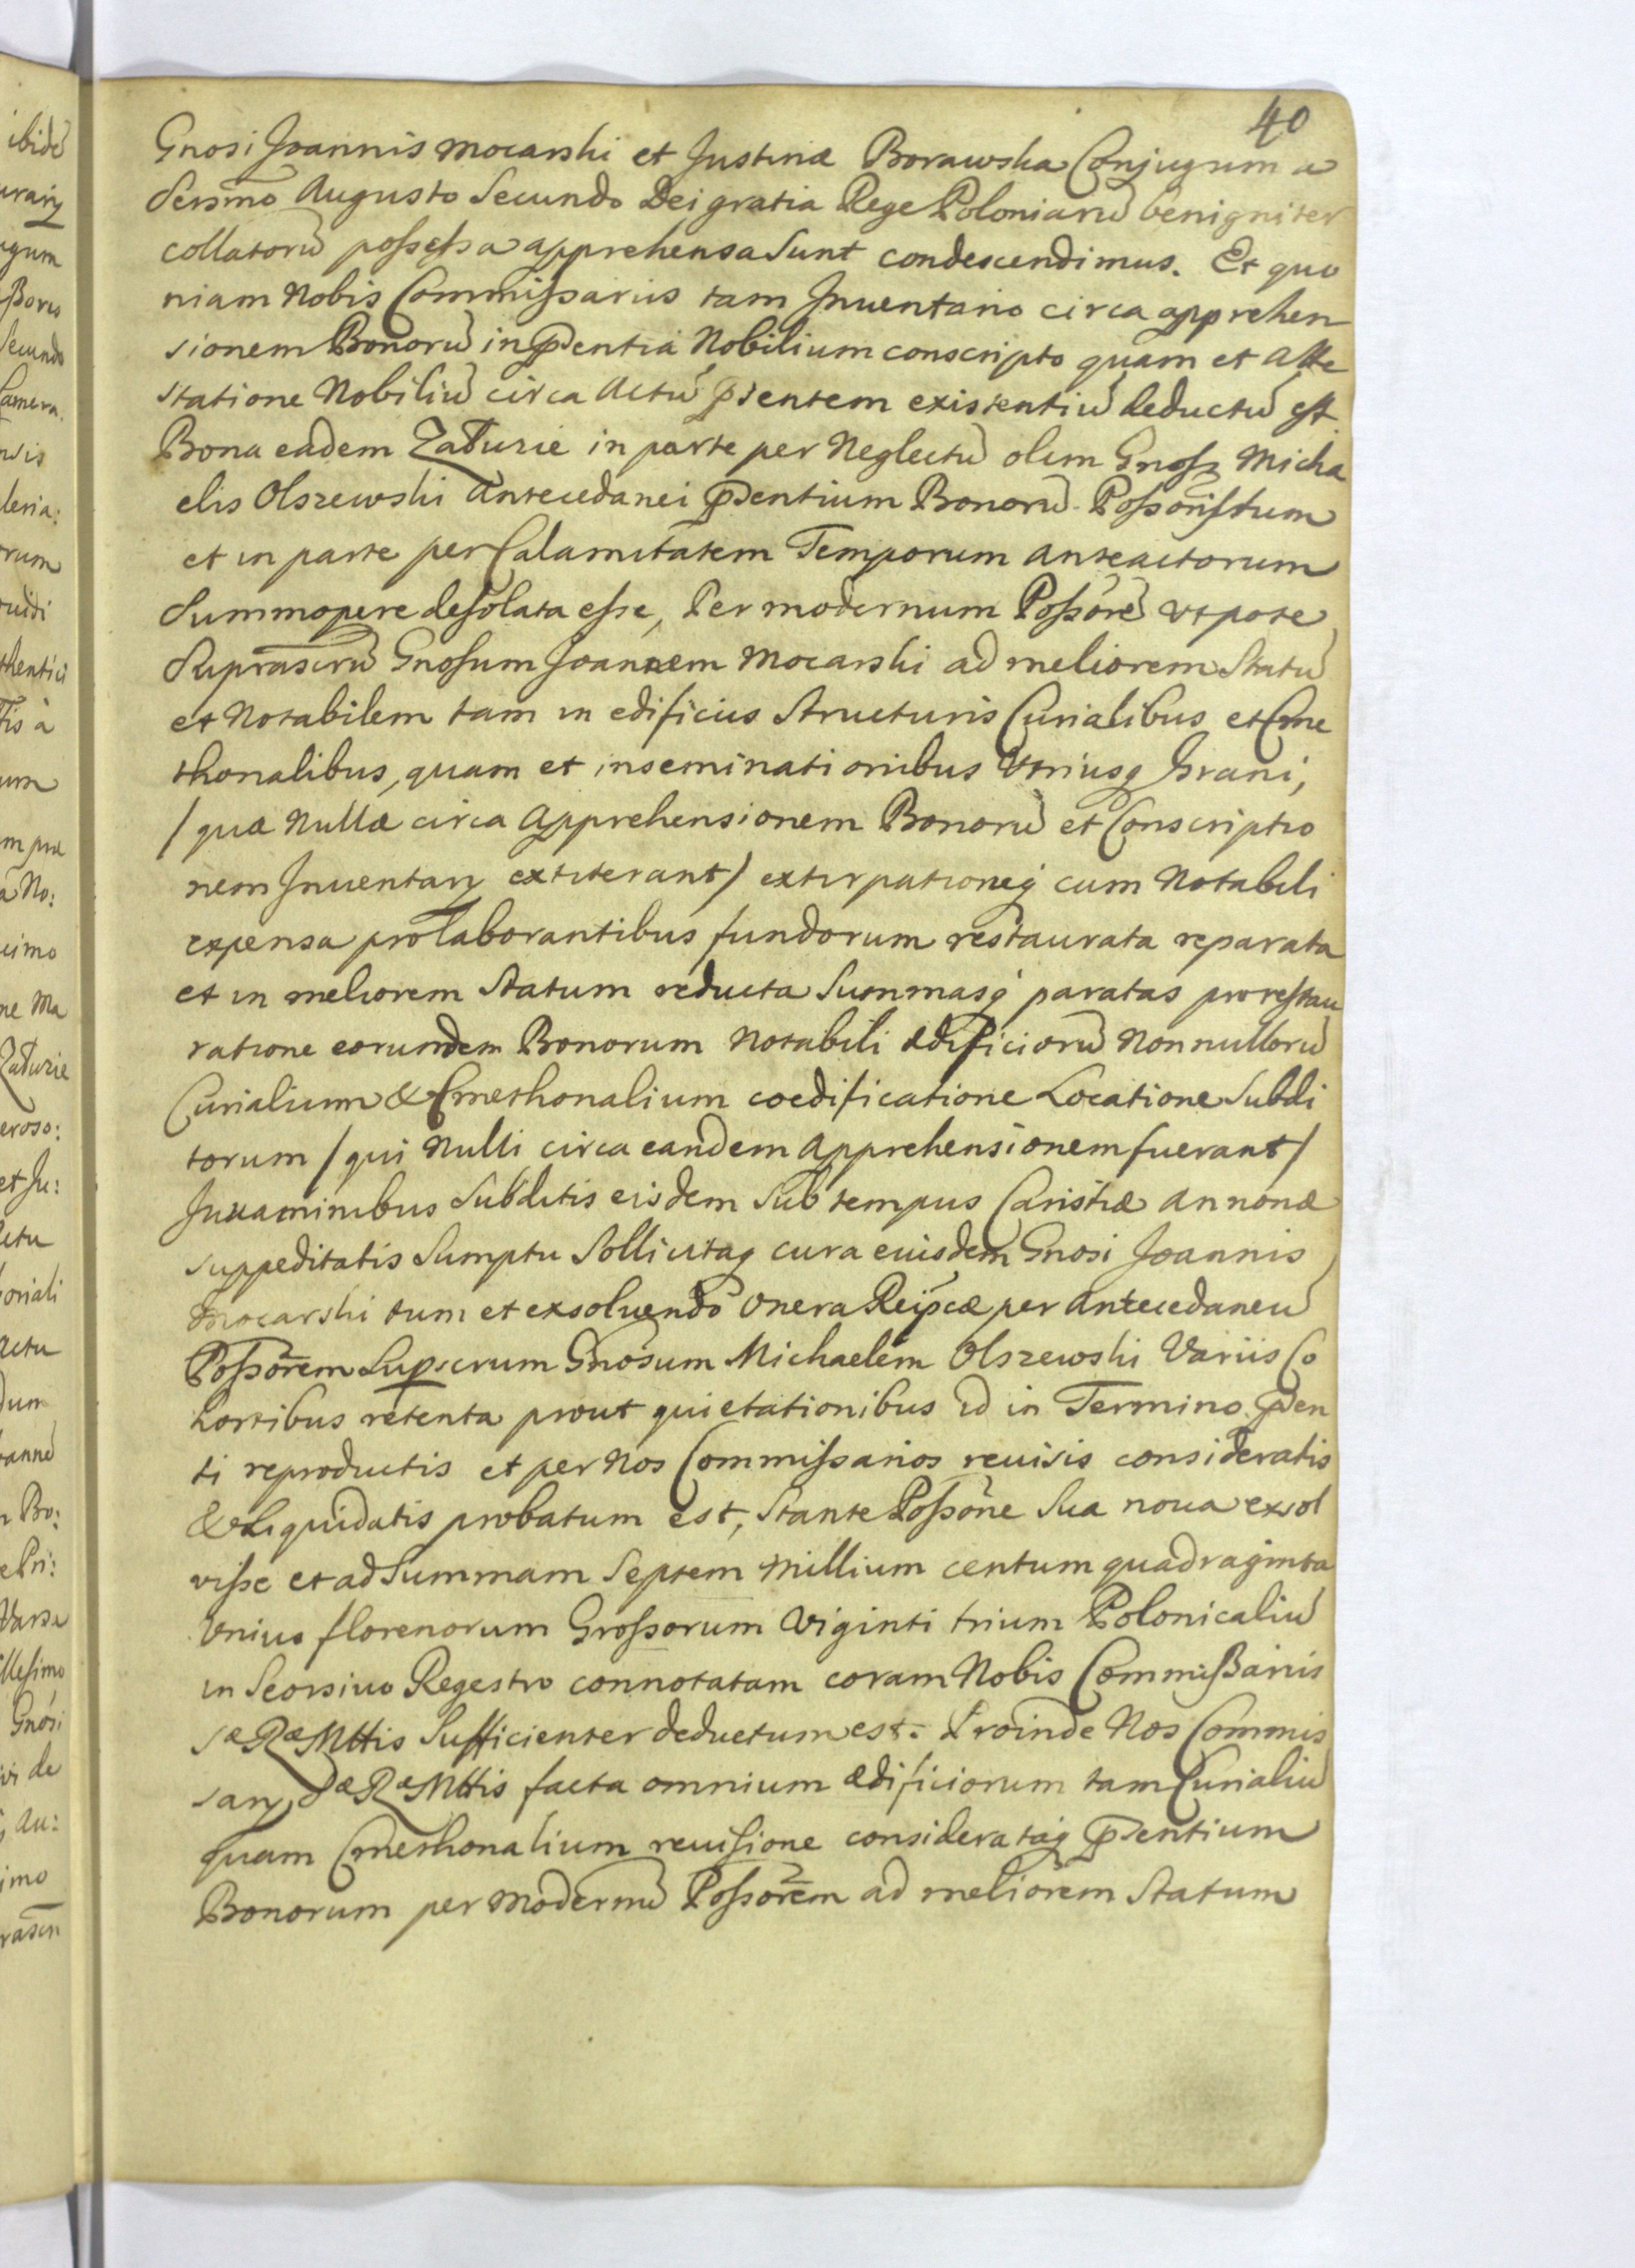 40
Gnosi Joannis Mocarski et Justinæ Borawska Conjugum a
Sersmo Augusto Secundo Dei gratia Rege Poloniarū benigniter
collatorū possessa apprehensa sunt condescendimus. Et quo
niam Nobis Commissariis tam Inventario circa apprehen
sionem Bonorū in pñdentia Nobilium conscripto quam et atte
statione Nobiliū circa Actū pñtentem existentiū deductū est
Bona eadem Zaduzie in parte per Neglectū olim Gnosi Micha
elis Olszewski Antecedanei pñdentium Bonorū
et in parte per Calamitatem Temporum anteactorum
Summopere desolata esse, Per modernum Possorē utpote
Suprascrū Gnosum Joannem Mocarski ad meliorem Statū
et Notabilem tam in edificiis structuris Curialibus et Cme
thonalibus, quam et inseminationibus Utriusq Grani,
/ quæ Nullæ circa Apprehensionem Bonorū et Conscriptio
nem Inuentarij extiterant / extirpationeq cum Notabili
expensa pro laborantibus fundorum restaurata reparata
et in meliorem Statum reducta Summasq paratas pro restau
ratione eorundem Bonorum Notabili ædificiorū Nonnullorū
Curialium & Cmethonalium coedificatione Locatione Subdi
torum / qui Nulli circa eandem Apprehensionem fuerant /
Juuaminibus Subditis eisdem Sub tempus Caristiæ annonæ
suppeditatis Sumptu Sollicitaq cura eiusdem Gnosi Joannis
Mocarski tum et exsoluendo Onera Reipcæ per Antecedaneū
Possorem Supscrum Gnosum Michaelem Olszewski Variis Co
hortibus retenta prout quietationibus id in Termino pñden
ti reproductis et per Nos Commissarios reuisis consideratis
& Liquidatis probatum est, Stante Possone Sua noua exsol
visse et ad Summam Septem Millium centum quadraginta
Unius florenorum Grossorum Viginti trium Polonicaliū
in Seorsiuo Regestro connotatam coram Nobis Commissariis
SæRæMttis Sufficienter deductum est. Proinde Nos Commis
sarij SæRæMttis facta omnium ædificiorum tam Curialiū
quam Cmethonalium reuisione considerataq pñdentium
Bonorum per Modernū Possorem ad meliorem Statum